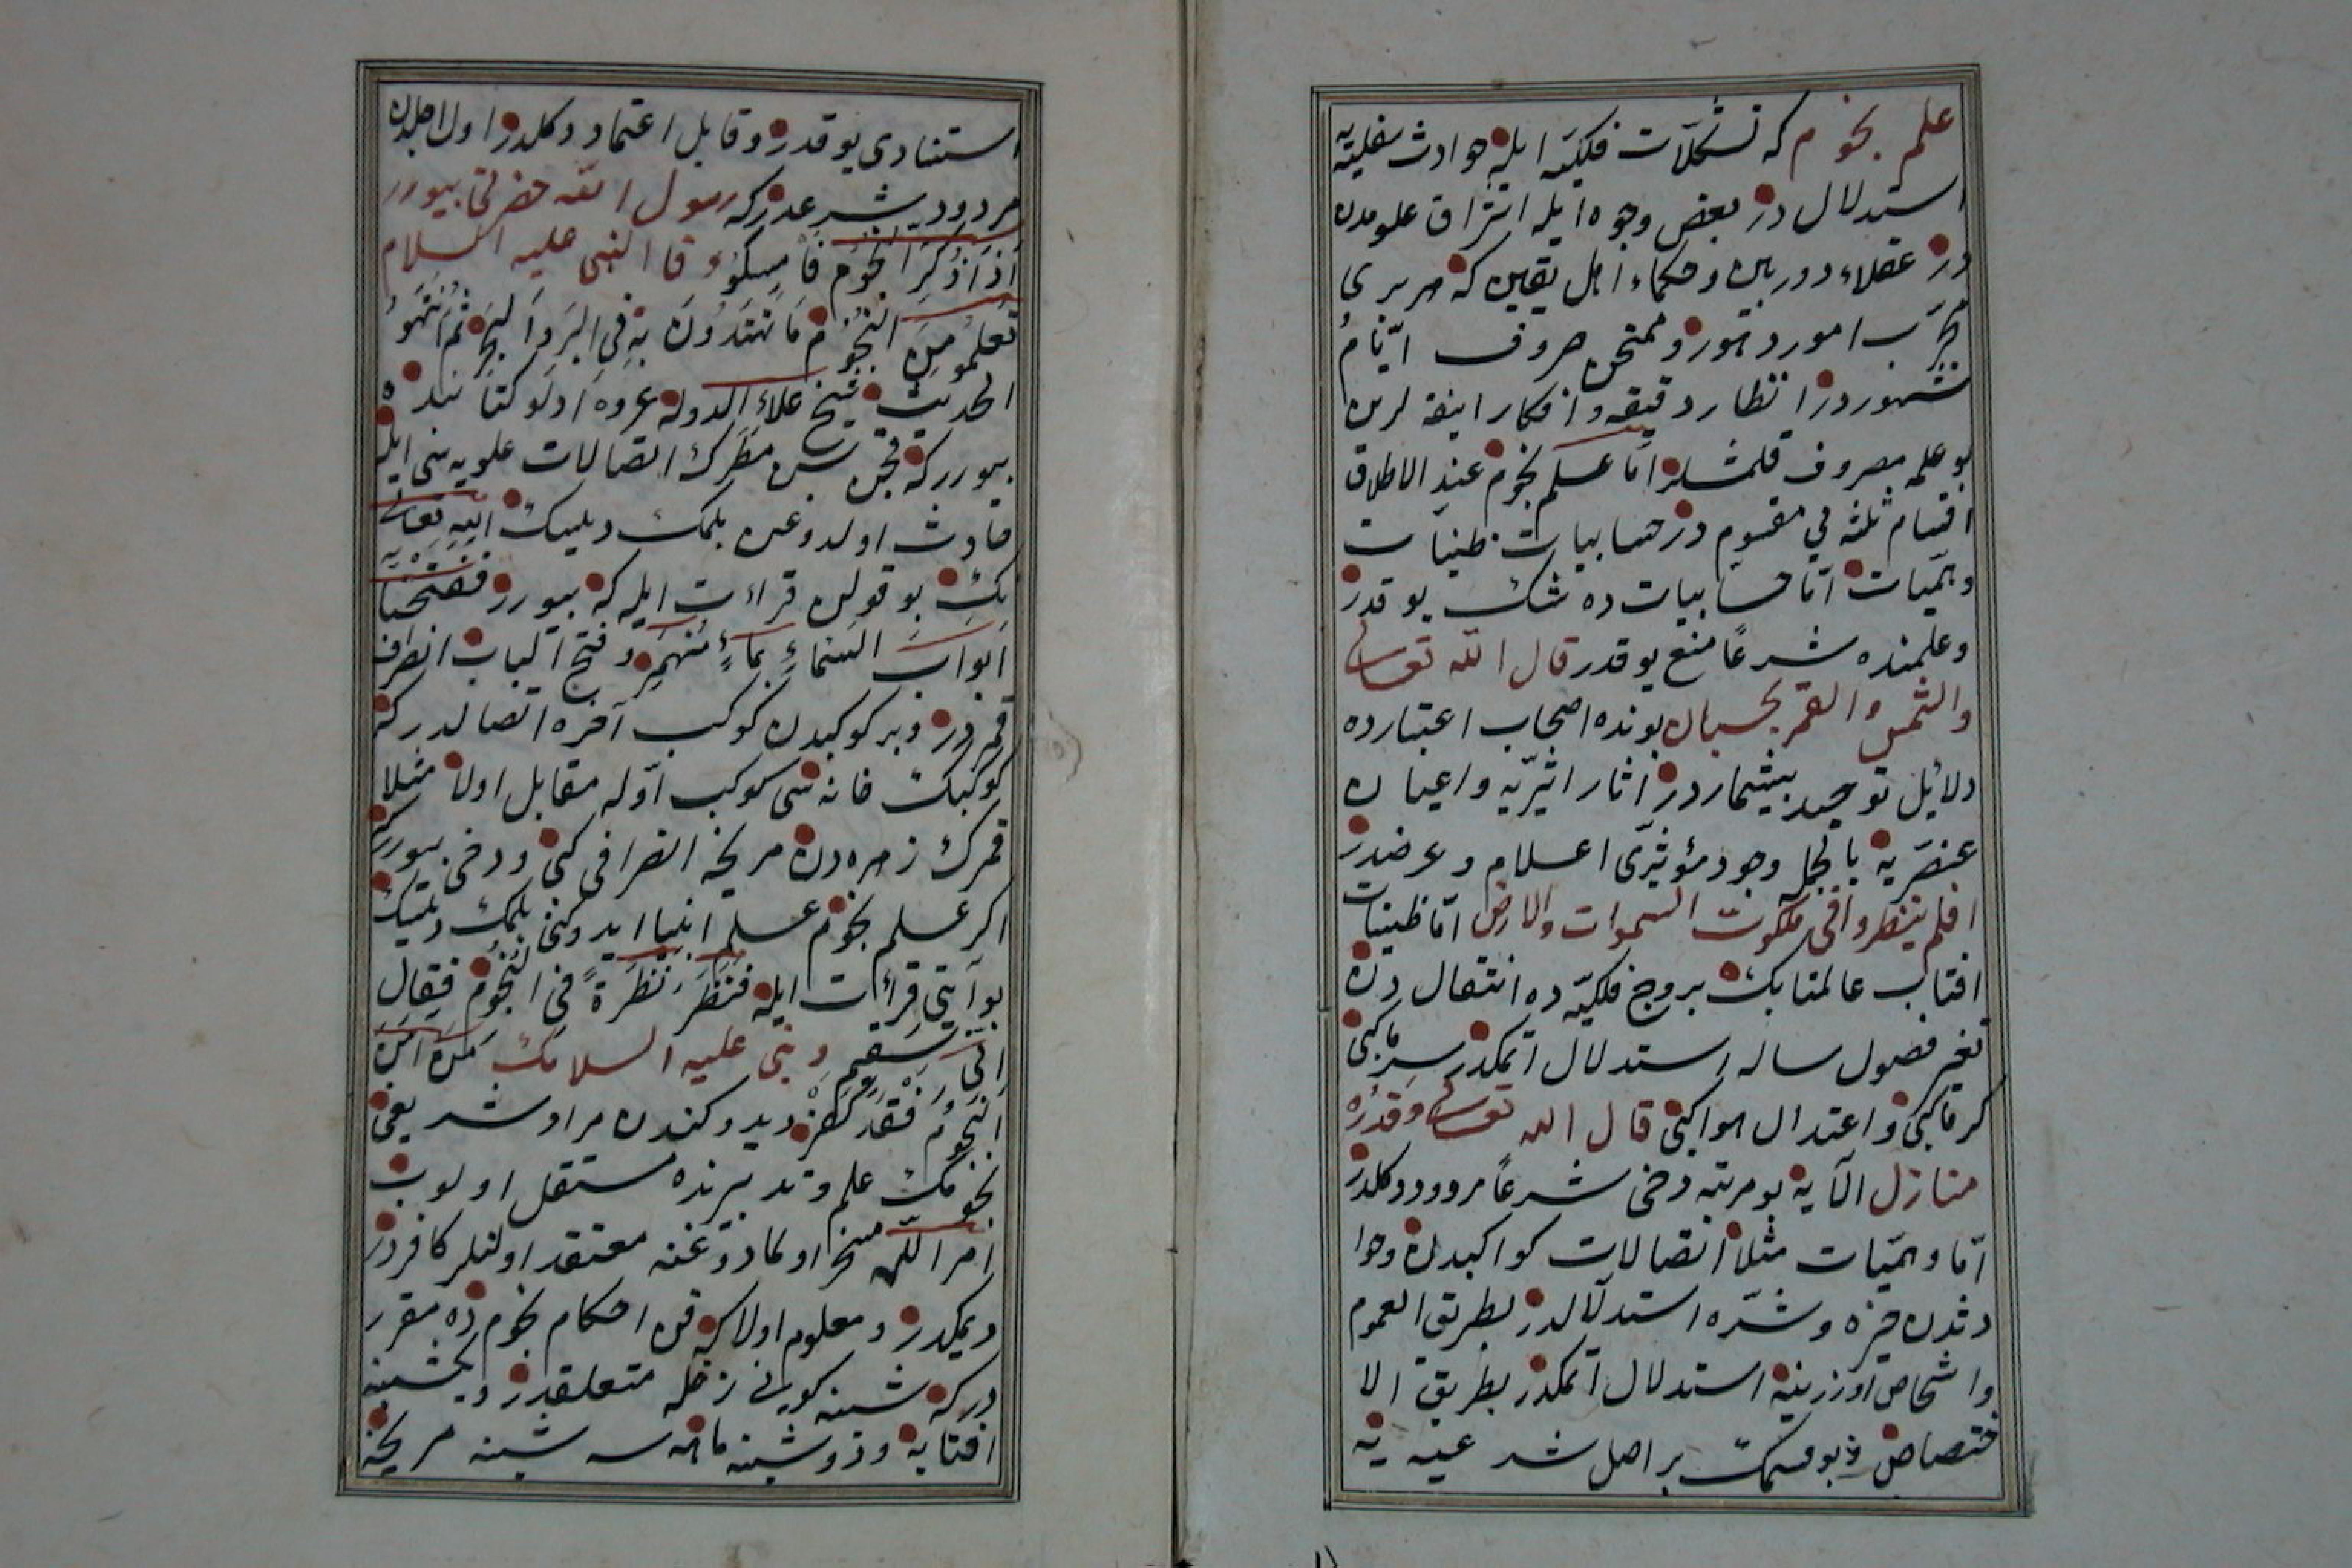 علم نجوم كه تشكلات فلكيّه ايله حوادث سفليّه
استدلالدر بعض وجوه ايله اشراق علومدن
در عقلاء دوربين و حكماء اهل يقين كه هر برى
مجرّب امور دهور و ممتحن صروف ايّام
شهوردر انظار دقيقه و افكار انيقه لرين
بو علمه مصروف قلمشلر امّا علم نجوم عند الاطلاق
اقسام ثلثه يى مقسوم در حسابيات ظنيات
وهميّات امّا حسابيات ده شك يوقدر
و علمنده شرعًا منع يوقدر قال الله تعالى
والشمس والقمر بحسبان بونده اصحاب اعتباره
دلائل توحيد بيشماردر آثار اثيريّه و اعيان
عنصريه بالجمله وجود مؤثرى اعلام و عرضدر
افلم ينظروا فى ملكوت السموات والارض امّا ظنيات
افتاب عالمتابك بروج فلكيّه ده انتقالدن
تغير فصول ساله استدلال اتمكدر سرما كبى
كرما كبى و اعتدال هوا كبى قال الله تعالى وقدره
منازل الآيه بو مرتبه دخى شرعًا مردود دكلدر
امّا وهميّات مثلا اتصالات كواكبدن وحوا
دثدن خيره و شرّه استدلالدر بطريق العموم
و اشخاص اوزرينه استدلال اتمكدر بطريق الا
ختصاص و بو قسمك بر اصل شرعيه يه
استنادى يوقدر و قابل اعتماد دكلدر اول اجلدن
مردود شرعدر كه رسول الله حضرتى بيورر
اذا ذكر النجوم فامسكوا و قال النبى عليه السلام
تعلموا من النجوم ما تهتدون به فى البر والبحر ثم انتهوا
الحديث شيخ علاء الدوله عروه ادلو كتابنده
بيورر كه نجن بس مطرك اتصالات علويه سى ايله
حادث اولدوغن بلمك ديلسك الله تعالى
نك بو قولن قراءت ايله كه بيورر ففتحنا
ابواب السماء بماء منهمر و فتح الباب انصراف
قمردر و بر كوكبدن كوكب آخره اتصالدر كه
كوكبك خانه سى كوكب اوّله مقابل اولا مثلا
قمرك زهره دن مريخه انصرافى كبى و دخى بيورر كه
اكر علم نجوم علم انبيا ايدوكنى بلمك ديلسك
بو آيتى قراءت ايله فنظر نظرة فى النجوم فقال
انى سقيم و نبى عليه السلامك من آمن
النجوم فقد كفر ديدوكندن مراد شريفى
نجومك علم و تدبيرنده مستقل اولوب
امر اللهه مسخر اولمادوغنه معتقد اولنلر كافردر
ديمكدر و معلوم اولا كه فن احكام نجومده مقرر
در كه شنبه كونى زحله متعلقدر و يكشنبه
افتابه و دوشنبه ماهه سه شنبه مريخه